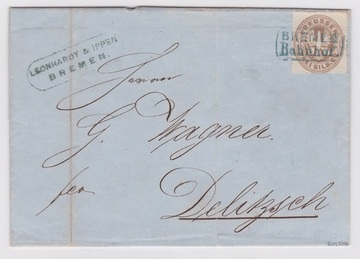 LEONHARDT & IPPEN
BREMEN.
BREMEN
Bahnhof
PREUSSEN
Herrn
G. Wagner.
fco
Delitzsch